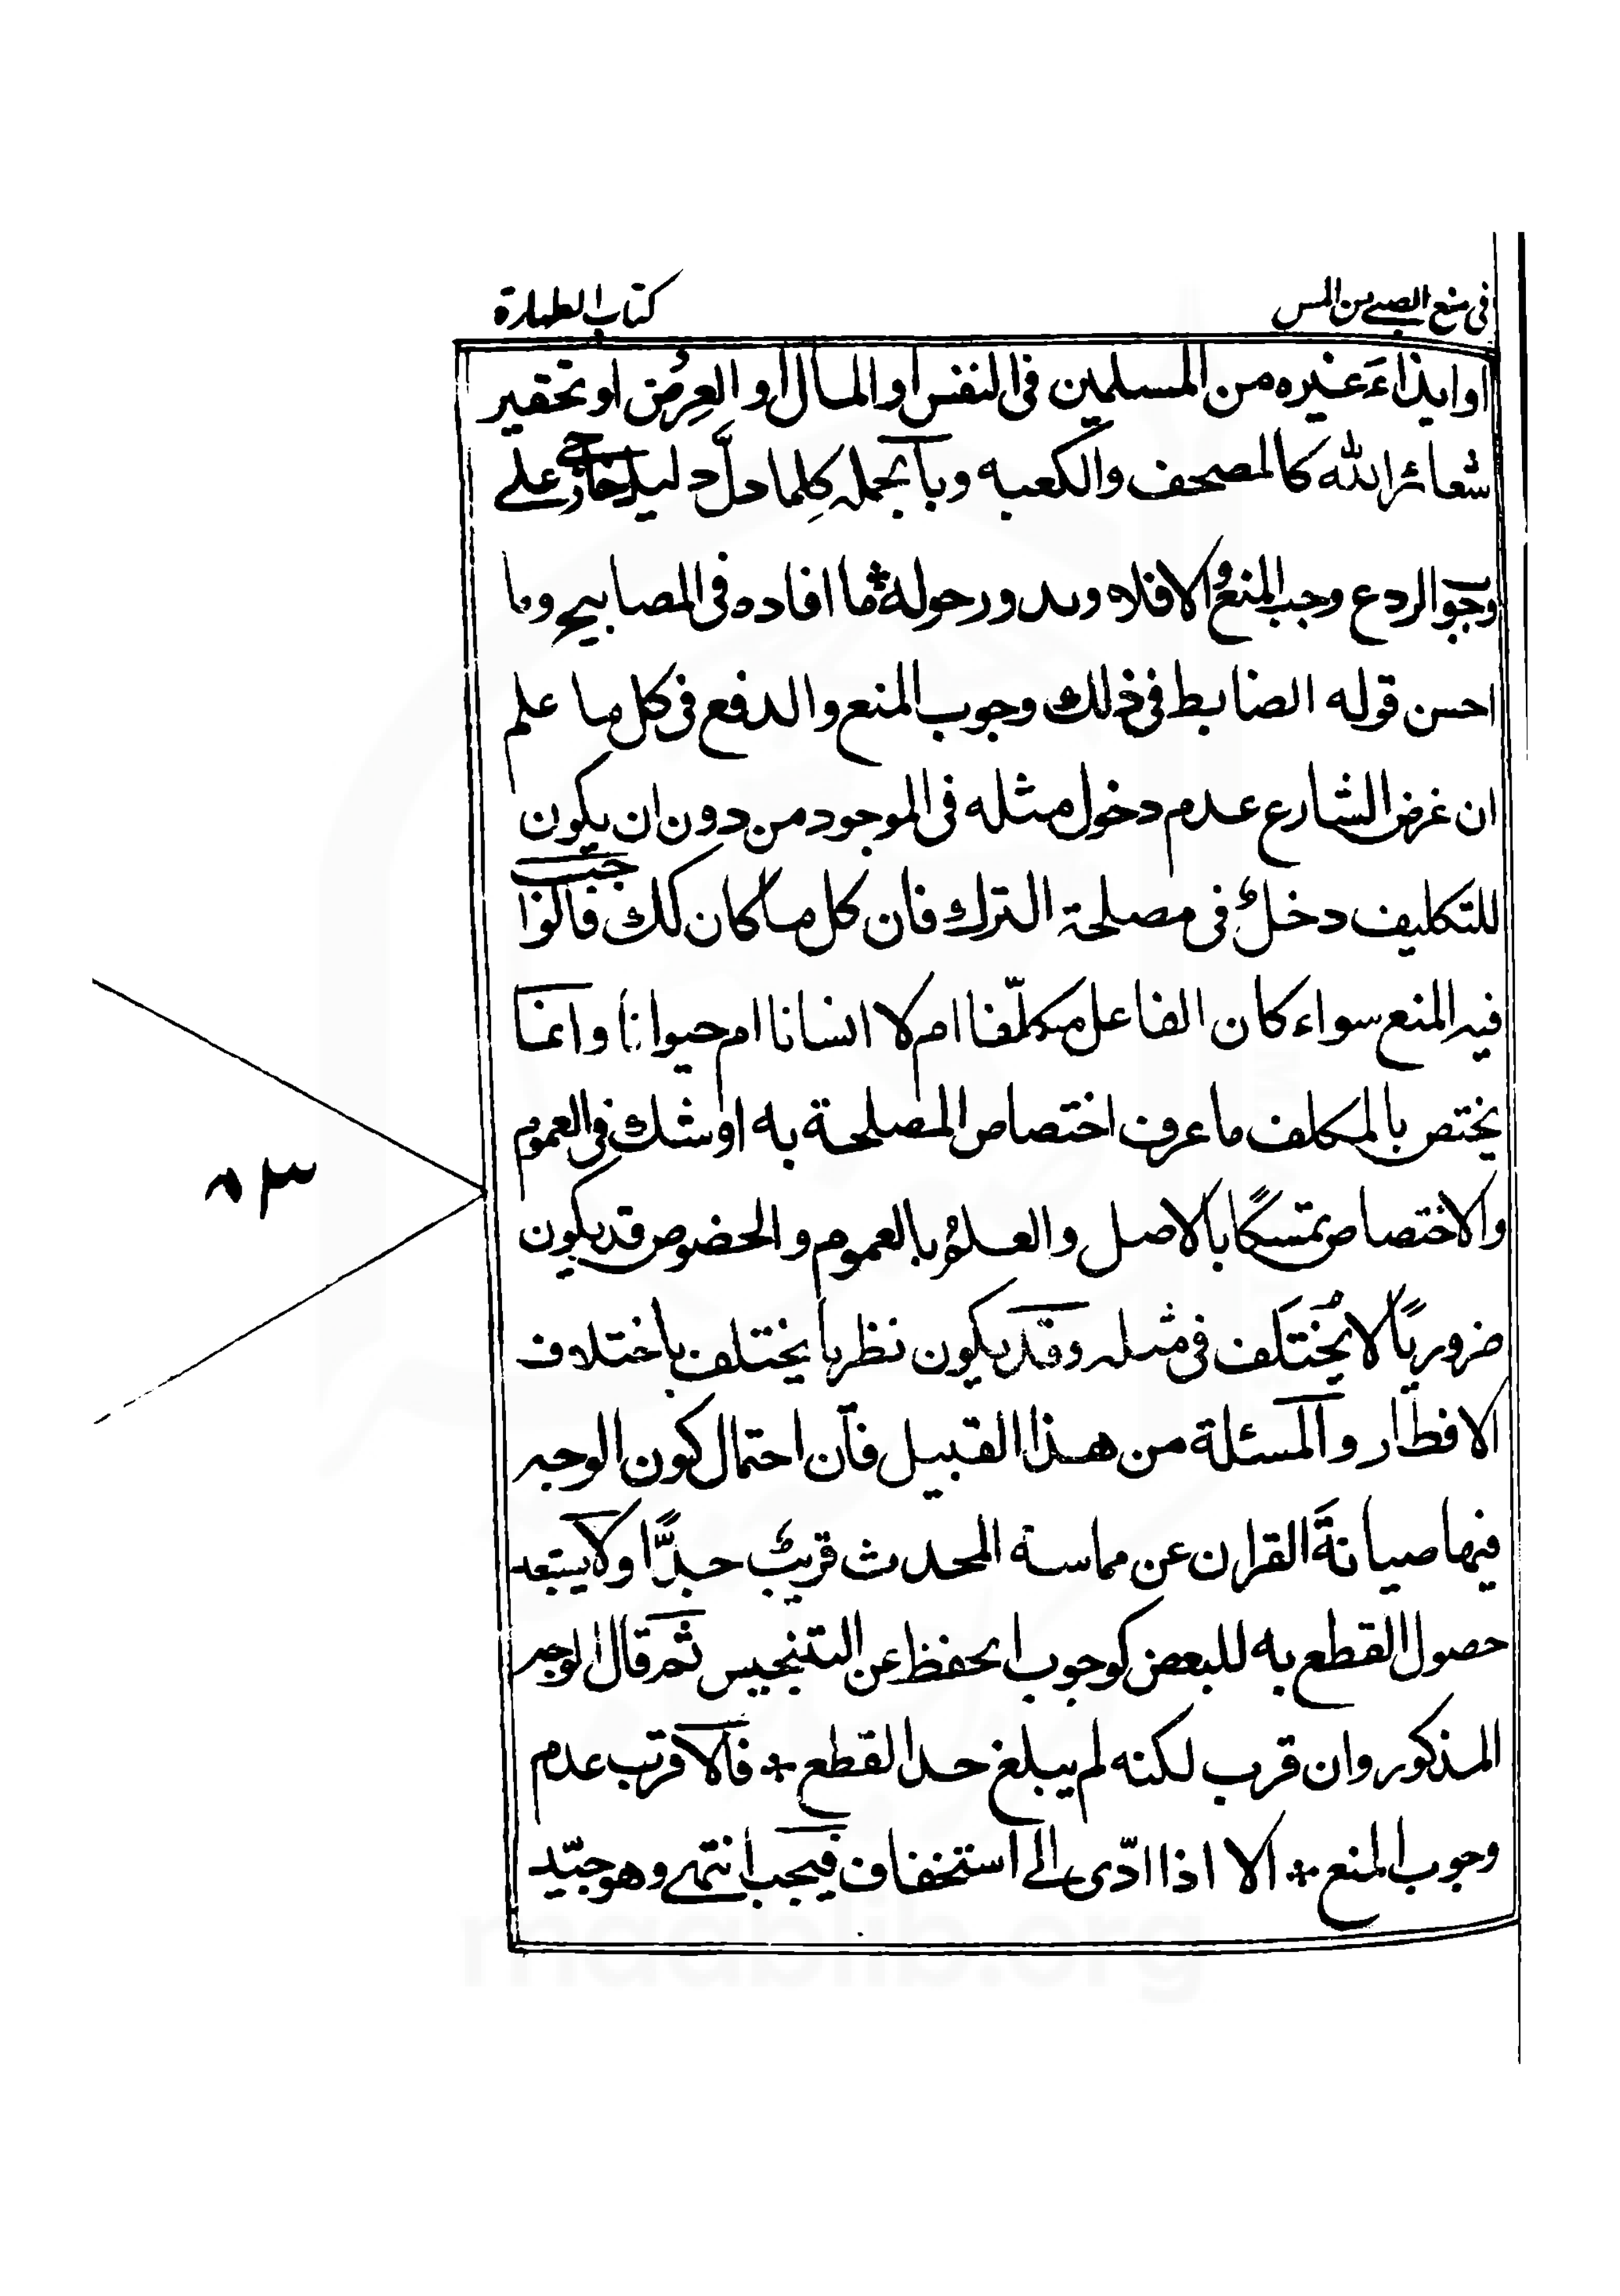 في منع الصبے من المس
كتاب الطهارة
او ايذاءَ غيره من المسلمين فى النفس او المال او العِرض او تحقير
شعائر الله كالمصحف والكعبه وبالجمله كلما دلَّ دليل خارجے علے
وجوب الردع وجب المنعُ الا فلا ويدور حوله ما افاده فى المصابيح وما
احسن قوله الضابط فى ذلك وجوب المنع والدفع فى كل ما علم
ان غرض الشارع عدم دخول مثله فى الموجود من دون ان يكون
للتكليف دخلٌ فى مصلحة الترك فان كل ما كان كك فالواجب
فيه المنع سواء كان الفاعل مكلّفا ام لا انسانا ام حيوانا وانما
يختص بالمكلف ما عرف اختصاص المصلحة به او شك فى العموم
والاختصاص تمسكًا بالاصل والعلمُ بالعموم والخصوص قد يكون
ضروريًا لا يُختَلف فى مثله وقد يكون نظريا يختلف باختلاف
الافطار والمسئلة من هذا القبيل فان احتمال كون الوجه
فيها صيانةَ القران عن مماسة المحدث قريبٌ جدًّا ولا يستبعد
حصول القطع به للبعض كوجوب الحفظ عن التنجيس ثم قال الوجه
المذكور وان قرب لكنه لم يبلغ حد القطع * فالاقرب عدم
وجوب المنع * الا اذا ادّى الے استخفاف فيجب انتهے وهو جيّد
۸۳
maablib.org